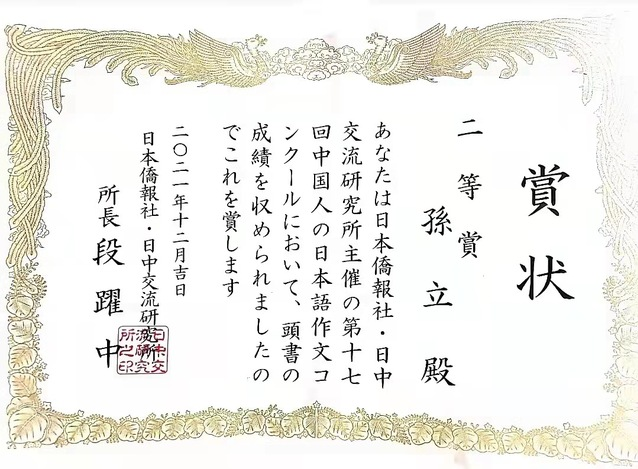 賞状
二等賞
孫立殿
あなたは日本僑報社・日中
交流研究所主催の第十七
回中国人の日本語作文コ
ンクールにおいて、頭書の
成績を収められましたの
でこれを賞します
二〇二一年十二月吉日
日本僑報社・日中交流研究所
所長段躍中
日中交
流研究
所之印